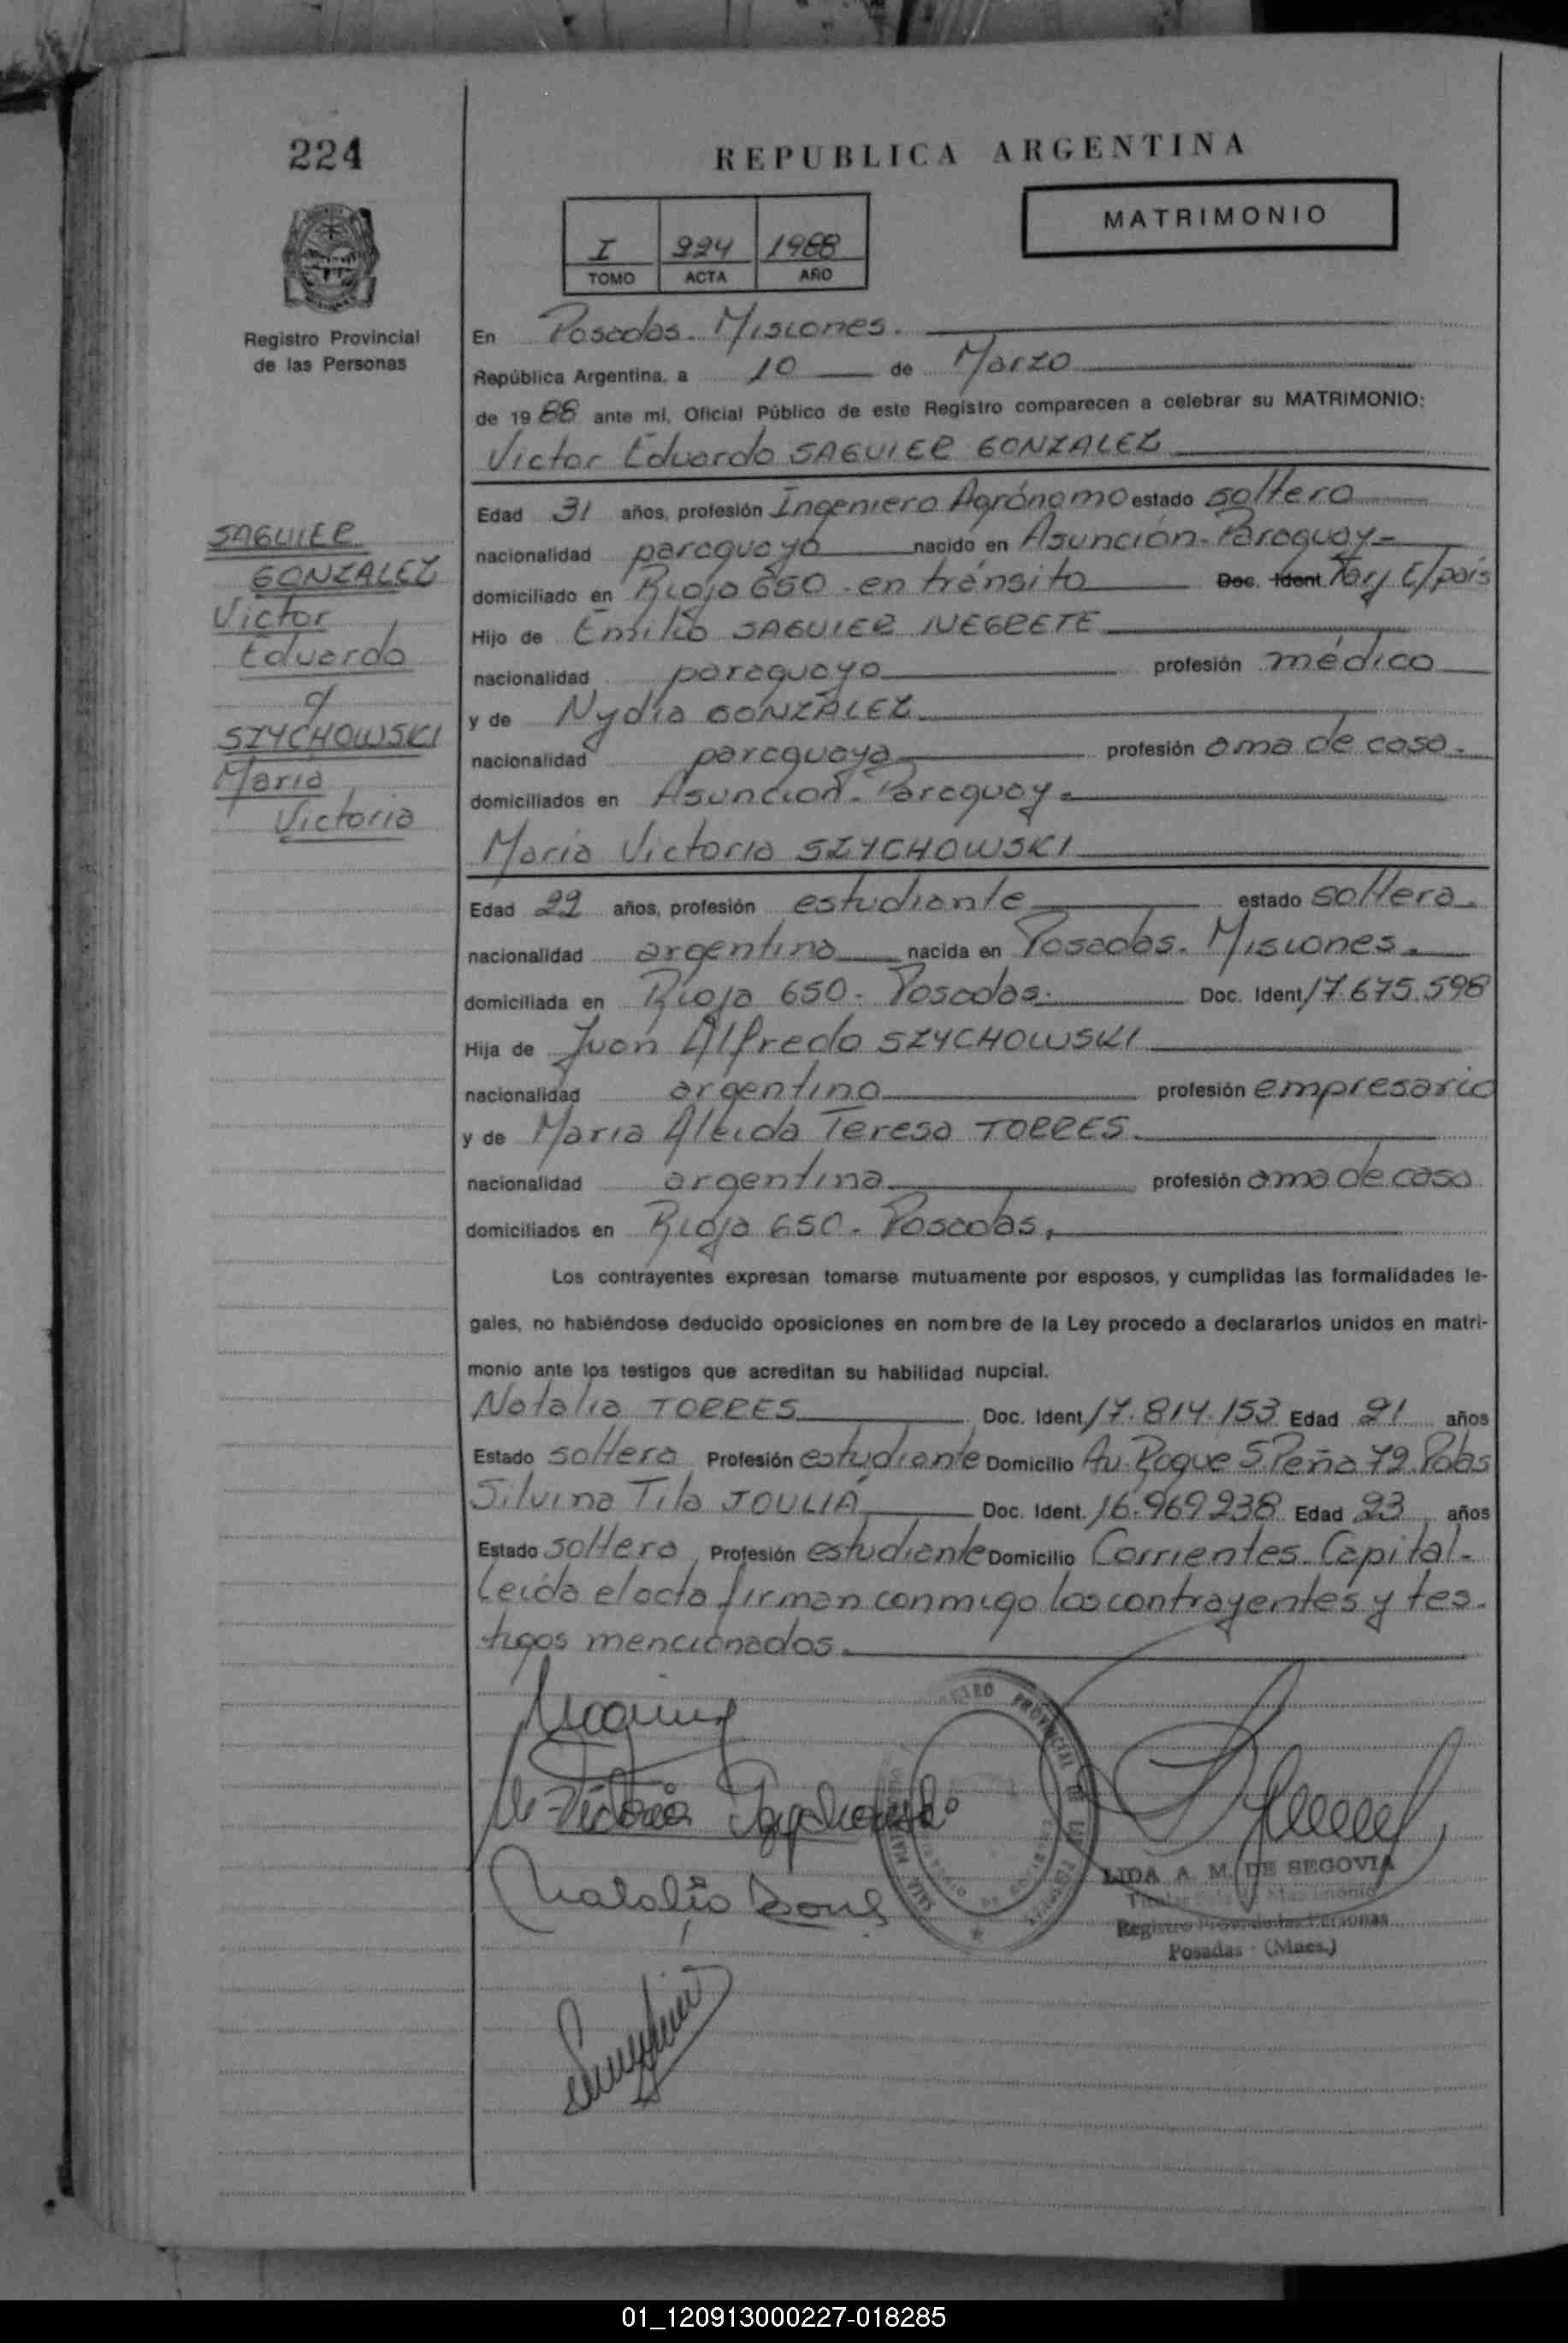 224
REPUBLICA ARGENTINA
MATRIMONIO
I 224 1988
TOMO ACTA AÑO
Registro Provincial
de las Personas
En Posadas. Misiones.
República Argentina, a 10 de Marzo
de 1988 ante mí, Oficial Público de este Registro comparecen a celebrar su MATRIMONIO:
Victor Eduardo SAGUIER GONZALEZ
Edad 31 años, profesión Ingeniero Agrónomo estado soltero
nacionalidad paraguayo nacido en Asunción-Paraguay-
domiciliado en Rioja 650 - en tránsito Doc. Ident. Tarj E/país
Hijo de Emilio SAGUIER NEGRETE
nacionalidad paraguayo profesión médico
y de Nydia GONZÁLEZ
nacionalidad paraguaya profesión ama de casa.
domiciliados en Asunción-Paraguay-
SAGUIER
GONZALEZ
Victor
Eduardo
c/
SZYCHOWSKI
María
Victoria
María Victoria SZYCHOWSKI
Edad 22 años, profesión estudiante estado soltera.
nacionalidad argentina nacida en Posadas. Misiones.
domiciliada en Rioja 650. Posadas. Doc. Ident 17.675.598
Hija de Juan Alfredo SZYCHOWSKI
nacionalidad argentino profesión empresario
y de María Aleida Teresa TORRES.
nacionalidad argentina profesión ama de casa
domiciliados en Rioja 650. Posadas.
Los contrayentes expresan tomarse mutuamente por esposos, y cumplidas las formalidades le-
gales, no habiéndose deducido oposiciones en nombre de la Ley procedo a declararlos unidos en matri-
monio ante los testigos que acreditan su habilidad nupcial.
Natalia TORRES Doc. Ident. 17.814.153 Edad 21 años
Estado soltera Profesión estudiante Domicilio Av. Roque S. Peña 72. Pdas
Silvina Tila JOULIÁ Doc. Ident. 16.969.238 Edad 23 años
Estado soltera Profesión estudiante Domicilio Corrientes. Capital-
Leída el acta firman conmigo los contrayentes y tes-
tigos mencionados.
LIDA A. M. DE SEGOVIA
Registro Prov. de las Personas
Posadas - (Mnes.)
01_120913000227-018285